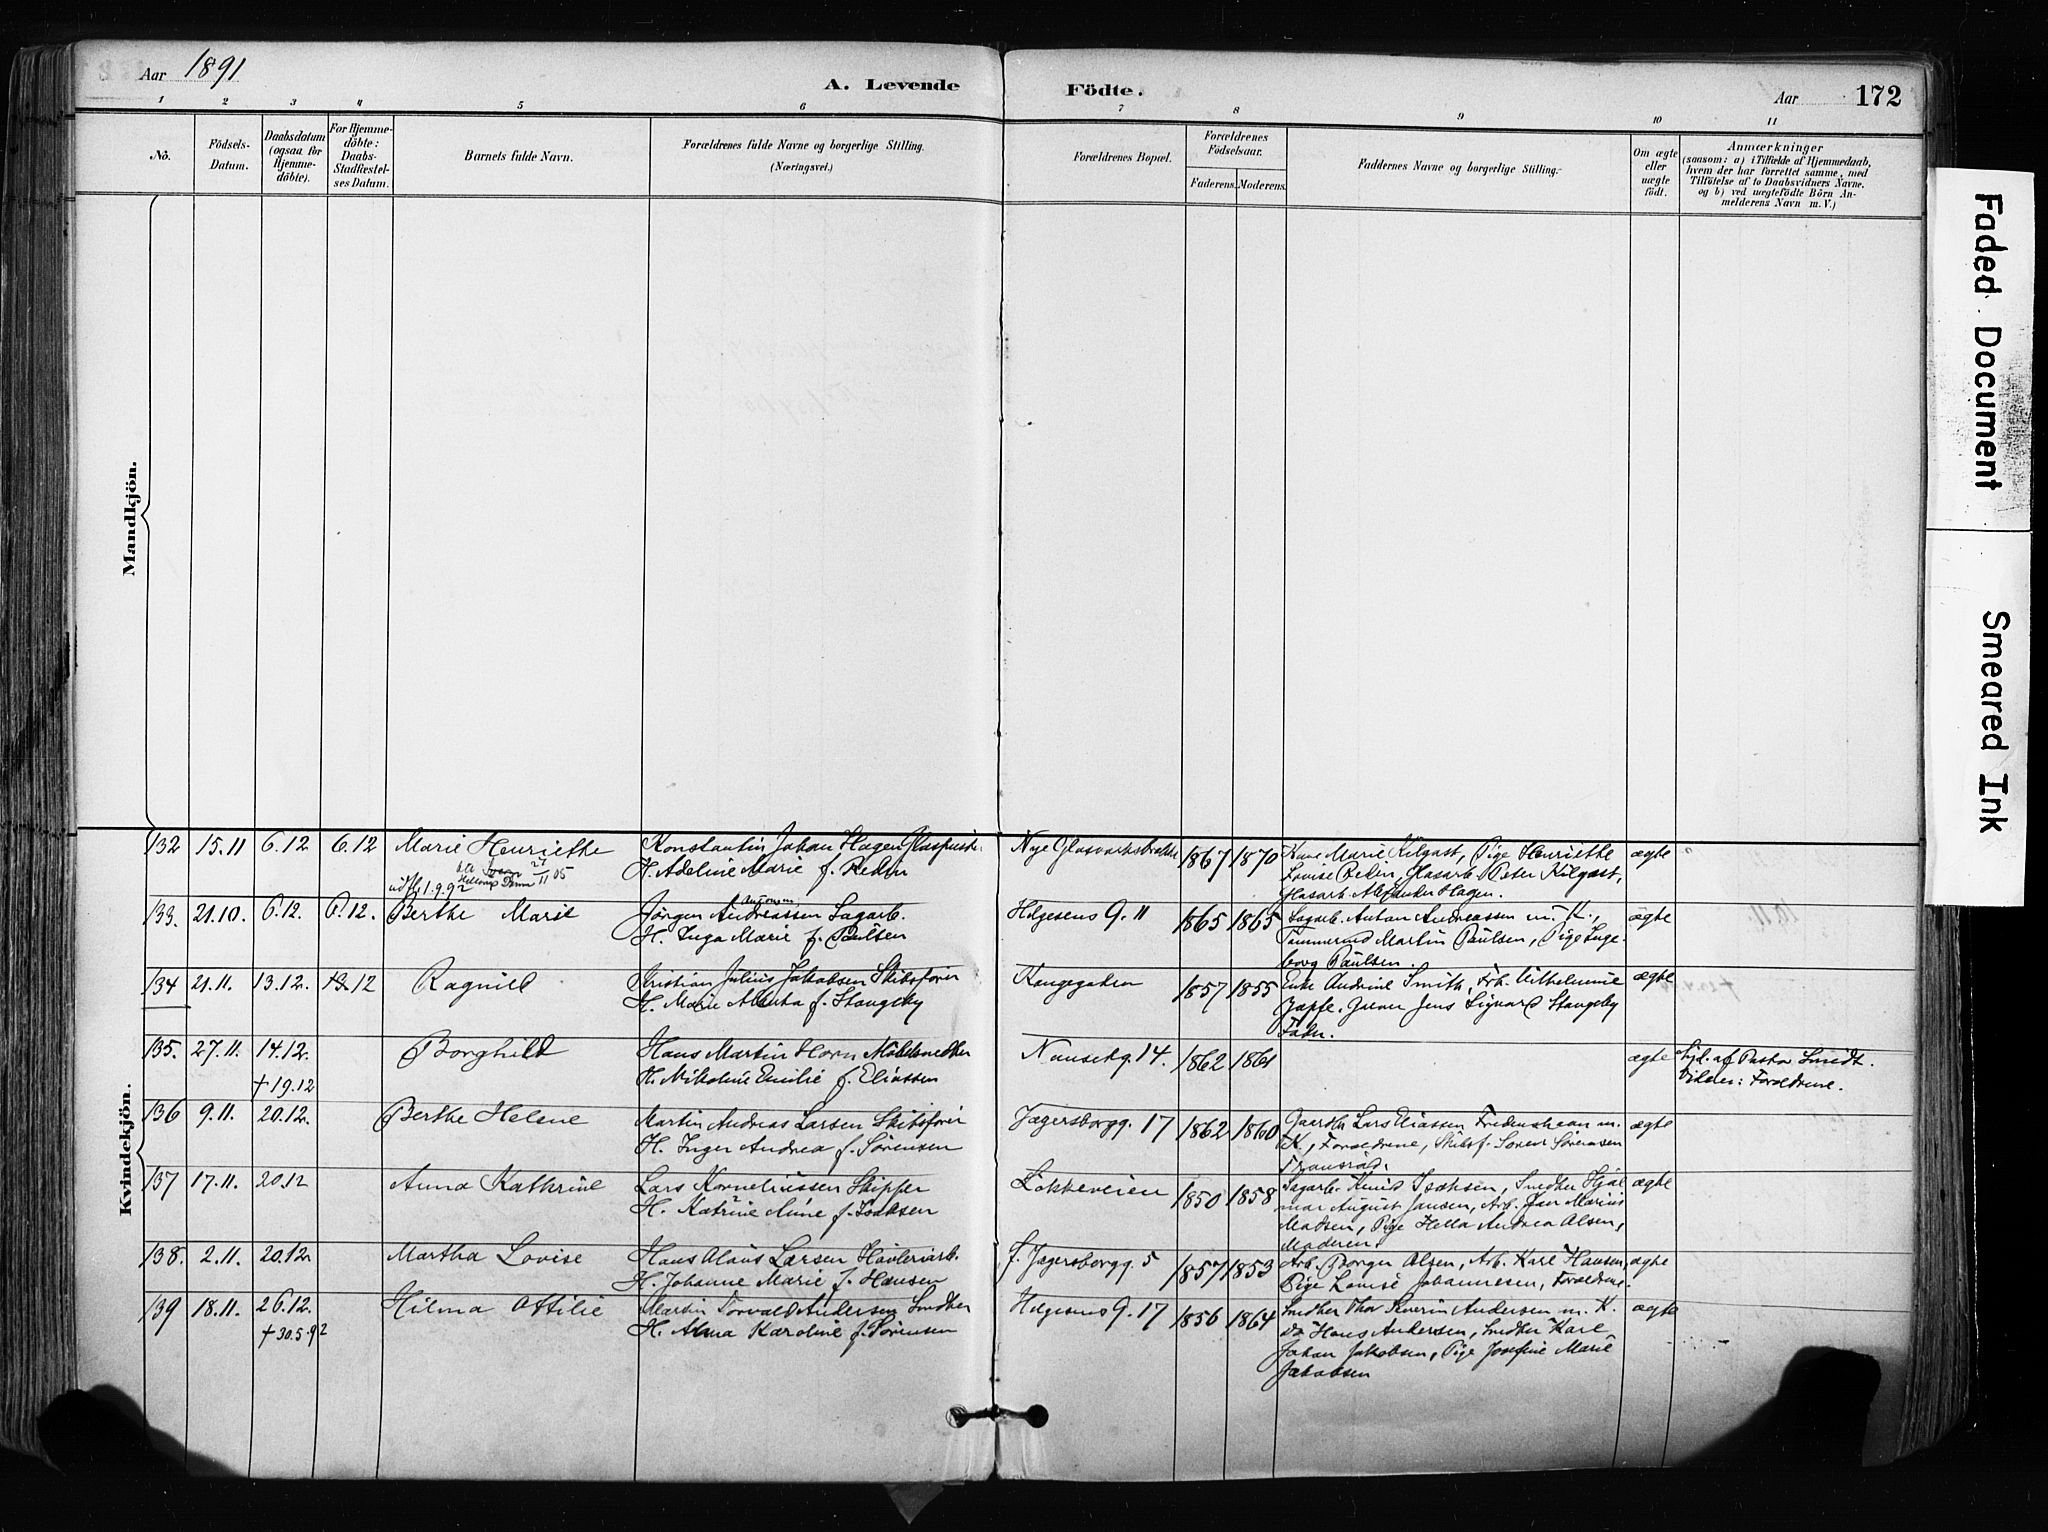 Aar 1891
A. Levende Födte.
Aar 172
1 2 3 4 5 6 7 8 9 10 11
No.
Födsels-Datum.
Daabsdatum (ogsaa for Hjemme-döbte).
For Hjemme-döbte: Daabs-Stadfæstel-ses Datum.
Barnets fulde Navn.
Forældrenes fulde Navne og borgerlige Stilling.
(Næringsvei.)
Forældrenes Bopæl.
Forældrenes Födselsaar.
Faderens. Moderens.
Faddernes Navne og borgerlige Stilling.
Om ægte eller uægte födt.
Anmærkninger
(saasom: a) i Tilfælde af Hjemmedaab,
hvem der har forrettet samme, med
Tilföielse af to Daabsvidners Navne.
og b) ved uægtefödte Börn An-
melderens Navn m. V.)
Mandkjön.
Kvindekjön.
132 15.11 6.12 6.12 Marie Henriethe Konstantin Johan Hagen Glaspuster Nye Glasværksbrakke 1867 1870 Kone Marie Kilgast, Pige Henriethe ægte
H. Adeline Marie f. Redin Lovise Redin, Glasarb. Peter Kilgast,
udfl 1.9.92 27/11 05 Glasarb. Alexander Hagen.
133. 21.10. 6.12. 6.12. Berthe Marie Jörgen Andreassen Sagarb. Helgesens G. 11 1865 1865 Sagarb. Anton Andreassen m. K., ægte
H. Inga Marie f. Paulsen Tömmermd Martin Paulsen, Pige Inge-
borg Paulsen.
134 21.11. 13.12. 13.12 Ragnild Kristian Julius Jakobsen Skibsförer Kongegaden 1857 1855 Enke Andrine Smith, Frk. Vilhelmine ægte
H. Marie Alberta f. Stangeby Zapfe, Jens Sigvard Stangeby
Fader.
135. 27.11. 14.12. Borghild Hans Martin Horn Möbelsnedker Nansetg. 14 1862 1861 ægte Hjd. af Pastor Smidt.
† 19.12 H. Nikoline Emilie f. Eliassen Vidner: Forældrene.
136 9.11. 20.12. Berthe Helene Martin Andreas Larsen Skibsförer Jægersborgg. 17 1862 1860 Lars Eliassen Fredenshavn m. ægte
H. Inger Andrea f. Sörensen K, Forældrene, Skibsf. Sören Sörensen
137 17.11. 20.12 Anna Kathrine Lars Korneliussen Skipper Lökkeveien 1850 1858 Sagarb. Knud Isaksen, Snedker Hjal ægte
H. Katrine Mine f. Isaksen mar August Jansen, Arb. Jan Marius
Madsen, Pige Hella Andrea Olsen,
Moderen.
138. 2.11. 20.12 Martha Lovise Hans Olaus Larsen Hövleriarb. f. Jægersborgg. 5 1857 1853 Arb. Borger Olsen, Arb. Karl Hansen, ægte
H. Johanne Marie f. Hansen Pige Lovise Johannesen, Forældrene.
139 18.11. 26.12. Hilma Ottilie Martin Torvald Andersen Snedker Helgesens G. 17 1856 1864 Snedker Thor Severin Andersen m. K. ægte
† 30.5.92 H. Anna Karoline f. Sörensen do Hans Andersen, Snedker Karl
Johan Jakobsen, Pige Josefine Marie
Jakobsen
Faded Document
Smeared Ink